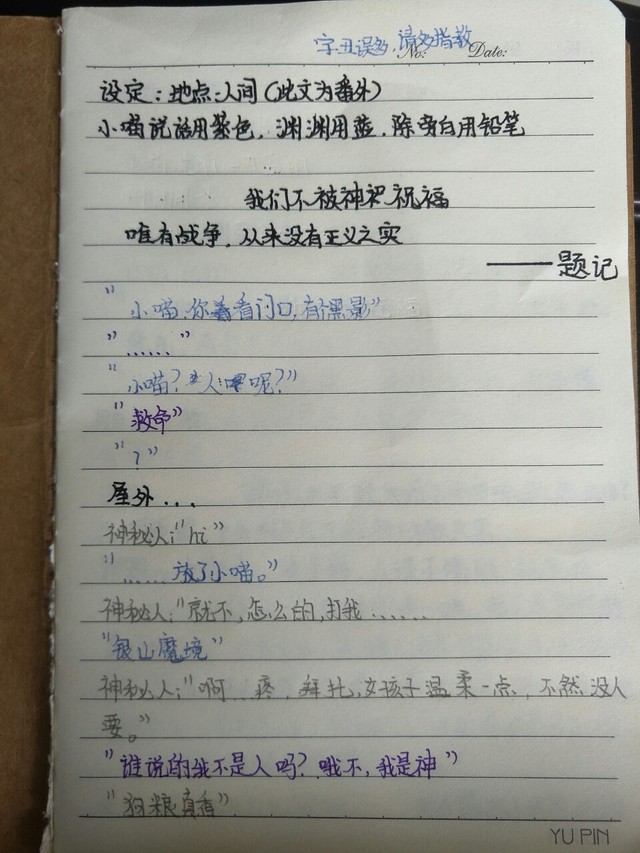 字丑误多,请多指教
No: Date:
设定:地点:人间(此文为番外)
小喵说话用紫色,渊渊用蓝,除旁白用铅笔
我们不被神祝福
唯有战争,从来没有正义之实
——题记
"小喵,你看门口,有个黑影"
"......"
"小喵?人呢?"
"救命"
"?"
屋外...
神秘人:"hi"
"......放了小喵。"
神秘人:"就不,怎么的,打我......
"银山魔境"
神秘人:"啊..疼,拜托,女孩子温柔一点,不然没人
要。"
"谁说的我不是人吗?哦不,我是神"
"狗粮真香"
YU PIN